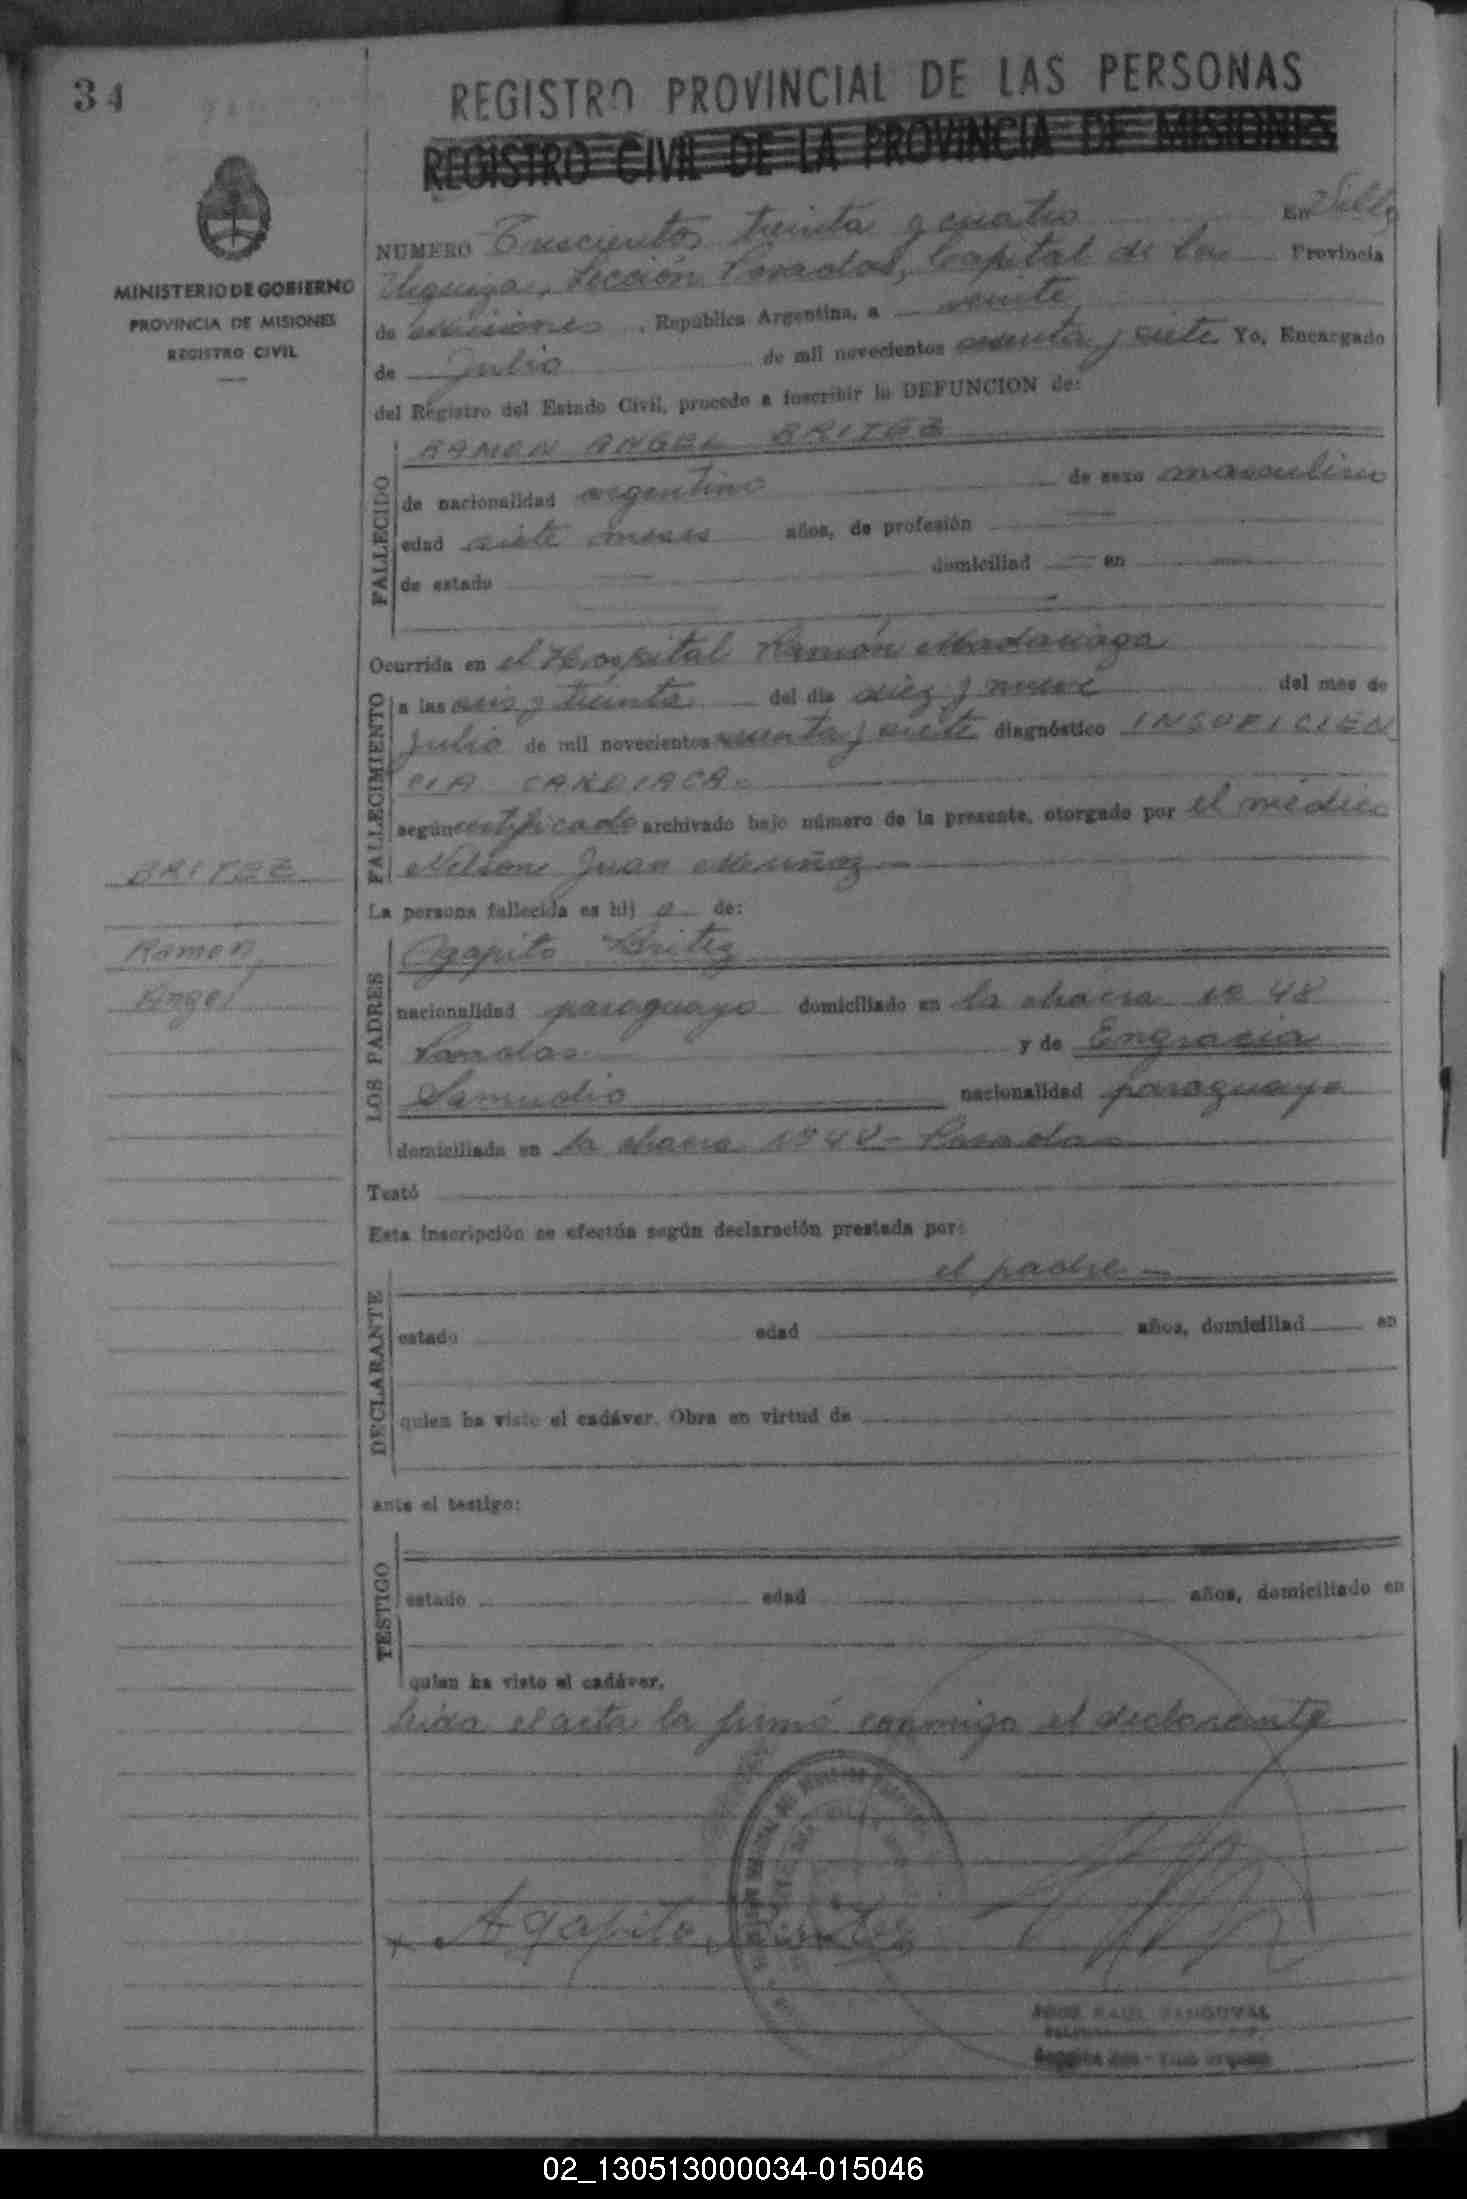 34
REGISTRO PROVINCIAL DE LAS PERSONAS
REGISTRO CIVIL DE LA PROVINCIA DE MISIONES
MINISTERIO DE GOBIERNO
PROVINCIA DE MISIONES
REGISTRO CIVIL
NUMERO Trescientos treinta y cuatro En Villa
Urquiza, Sección Posadas, Capital de la Provincia
de Misiones, República Argentina, a veinte
de Julio de mil novecientos y siete Yo, Encargado
del Registro del Estado Civil, procedo a inscribir la DEFUNCION de:
FALLECIDO
RAMON ANGEL BRITEZ
de nacionalidad argentino de sexo masculino
edad siete meses años, de profesión
de estado domiciliad en
Ocurrida en el Hospital Ramón Madariaga
FALLECIMIENTO
a las seis y treinta del dia diez y nueve del mes de
Julio de mil novecientos y siete diagnóstico INSUFICIEN
CIA CARDIACA.
según certificado archivado bajo número de la presente, otorgado por el médico
Nelson Juan Muñoz
La persona fallecida es hij o de:
BRITEZ
Ramon
Angel
LOS PADRES
Agapito Britez
nacionalidad paraguayo domiciliado en la chacra Nº 48
Posadas y de Engracia
Samudio nacionalidad paraguaya
domiciliada en la chacra Nº 48 - Posadas
Testó
Esta inscripción se efectúa según declaración prestada por:
DECLARANTE
el padre
estado edad años, domiciliad en
quien ha visto el cadáver. Obra en virtud de
ante el testigo:
TESTIGO
estado edad años, domiciliado en
quien ha visto el cadáver.
Leida el acta la firmó conmigo el declarante
Agapito Britez
JOSE RAUL SANDOVAL
02_130513000034-015046